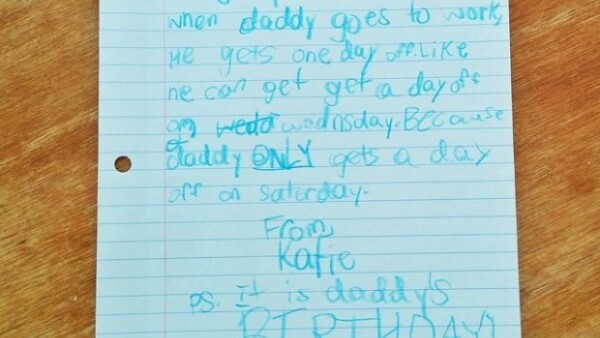 when daddy goes to work,
He gets one day off. Like
he can get get a day off
on wedd wednsday. Because
daddy ONLY gets a day
off on saturday.
From,
Katie
Ps. It is daddy's
BIRTHDAY!